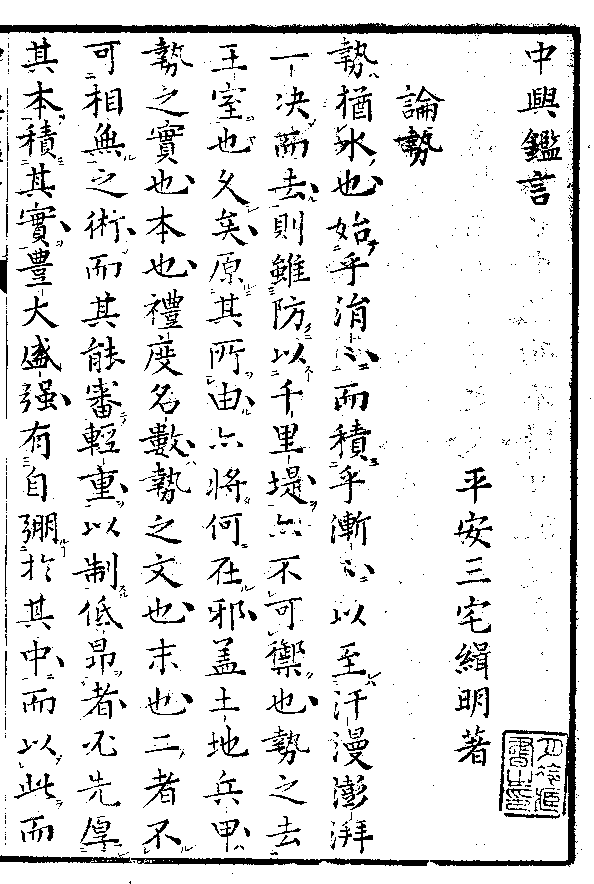 中興鑑言
平安三宅緝明著
論勢
勢猶水也始乎涓々而積乎漸々以至汗漫澎湃
一决而去則雖防以千里堤亦不可禦也勢之去
王室也久矣原其所由亦將何在邪蓋土地兵甲
勢之實也本也禮度名數勢之文也末也二者不
可相無之術而其能審輕重以制低昂者必先厚
其本積其實豊大盛强有自弸於其中而以此而